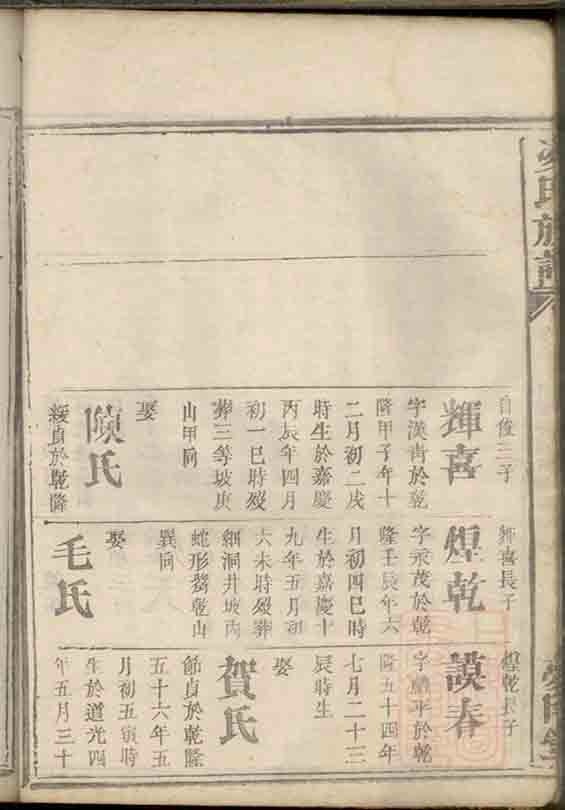 氏族譜
自俊三子
輝喜
字漢青於乾
隆甲子年十
二月初二戌
時生於嘉慶
丙辰年四月
初一巳時歿
葬三等坡庚
山甲向
娶
陳氏
緩貞於乾隆
輝喜長子
煌乾
字永茂於乾
隆壬辰年六
月初四巳時
生於嘉慶十
九年五月初
六未時歿葬
細洞井坡內
蛇形嘴乾山
巽向
娶
毛氏
煌乾長子
謨春
字 平於乾
隆五十四年
七月二十三
辰時生
娶
賀氏
節貞於乾隆
五十六年五
月初五寅時
生於道光四
年五月三十